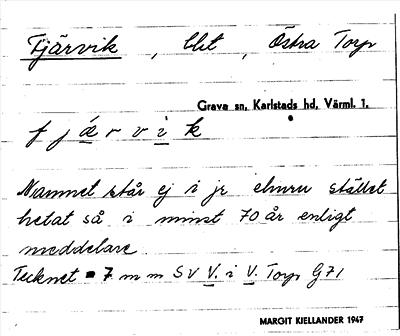 Fjärvik, bht, Östra Torp
Grava sn, Karlstads hd, Värml. l.
f j ǽ r v i k
Namnet står ej i jr ehuru stället
hetat så i minst 70 år enligt
meddelare.
Tecknet 7 m m SV V. i V. Torp G71
MARGIT KJELLANDER 1947